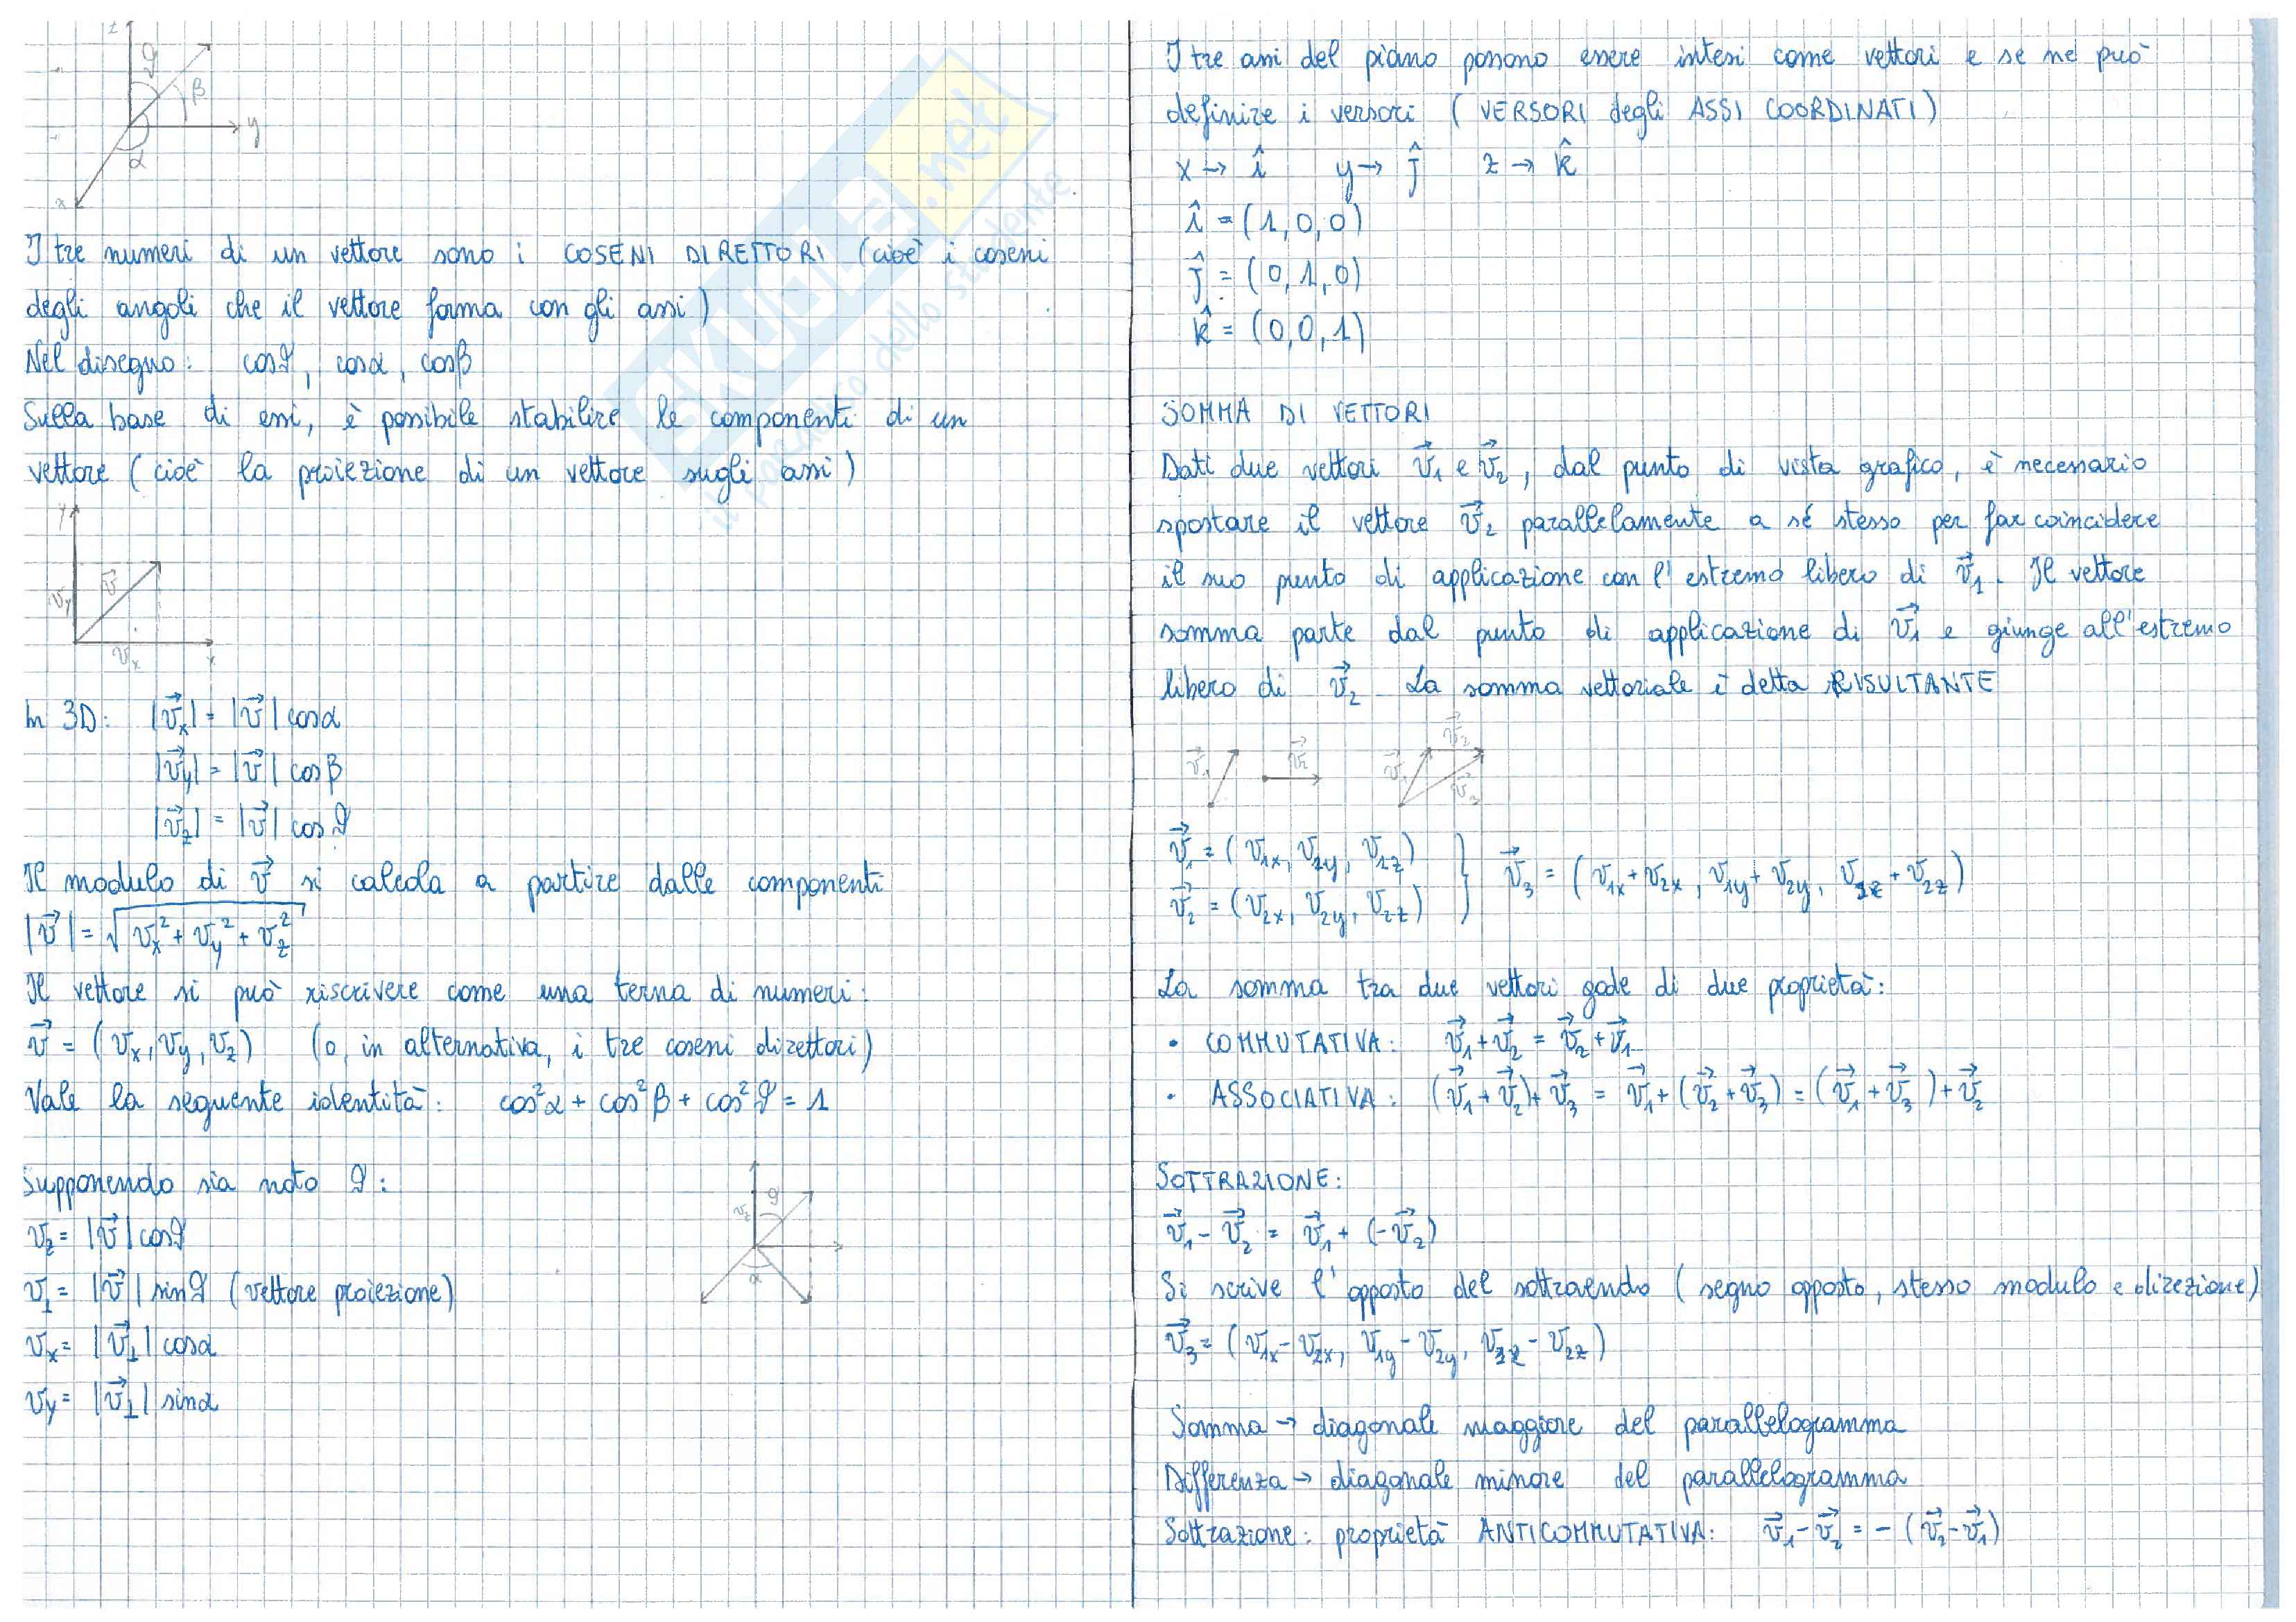 z
ϑ
β
y
α
x
I tre numeri di un vettore sono i COSENI DIRETTORI (cioè i coseni
degli angoli che il vettore forma con gli assi)
Nel disegno: cosϑ, cosα, cosβ
Sulla base di essi, è possibile stabilire le componenti di un
vettore (cioè la proiezione di un vettore sugli assi)
y
v⃗
vy
vx
x
In 3D: |v⃗x| = |v⃗| cosα
|v⃗y| = |v⃗| cosβ
|v⃗z| = |v⃗| cosϑ
Il modulo di v⃗ si calcola a partire dalle componenti
|v⃗| = √(vx² + vy² + vz²)
Il vettore si può riscrivere come una terna di numeri:
v⃗ = (vx, vy, vz) (o, in alternativa, i tre coseni direttori)
Vale la seguente identità: cos²α + cos²β + cos²ϑ = 1
Supponendo sia noto ϑ:
vz = |v⃗| cosϑ
v⊥ = |v⃗| sinϑ (vettore proiezione)
vx = |v⃗⊥| cosα
vy = |v⃗⊥| sinα
vz
ϑ
α
I tre assi del piano possono essere intesi come vettori e se ne può
definire i versori (VERSORI degli ASSI COORDINATI)
x → î y → ĵ z → k̂
î = (1,0,0)
ĵ = (0,1,0)
k̂ = (0,0,1)
SOMMA DI VETTORI
Dati due vettori v⃗1 e v⃗2, dal punto di vista grafico, è necessario
spostare il vettore v⃗2 parallelamente a sé stesso per far coincidere
il suo punto di applicazione con l'estremo libero di v⃗1. Il vettore
somma parte dal punto di applicazione di v⃗1 e giunge all'estremo
libero di v⃗2 La somma vettoriale è detta RISULTANTE
v⃗1 v⃗2 v⃗1 v⃗2 v⃗3
v⃗1 = (v1x, v1y, v1z)
v⃗2 = (v2x, v2y, v2z)
} v⃗3 = (v1x + v2x, v1y + v2y, v1z + v2z)
La somma tra due vettori gode di due proprietà:
• COMMUTATIVA: v⃗1 + v⃗2 = v⃗2 + v⃗1
• ASSOCIATIVA: (v⃗1 + v⃗2) + v⃗3 = v⃗1 + (v⃗2 + v⃗3) = (v⃗1 + v⃗3) + v⃗2
SOTTRAZIONE:
v⃗1 - v⃗2 = v⃗1 + (-v⃗2)
Si scrive l'opposto del sottraendo (segno opposto, stesso modulo e direzione)
v⃗3 = (v1x - v2x, v1y - v2y, v1z - v2z)
Somma → diagonale maggiore del parallelogramma
Differenza → diagonale minore del parallelogramma
Sottrazione: proprietà ANTICOMMUTATIVA: v⃗1 - v⃗2 = - (v⃗2 - v⃗1)
SKUOLA.net
il paradiso dello studente